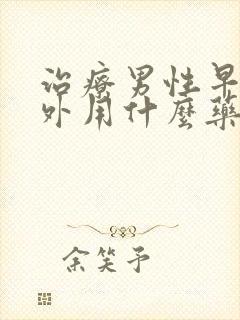 治療男性早
外用什麼藥
余笑予